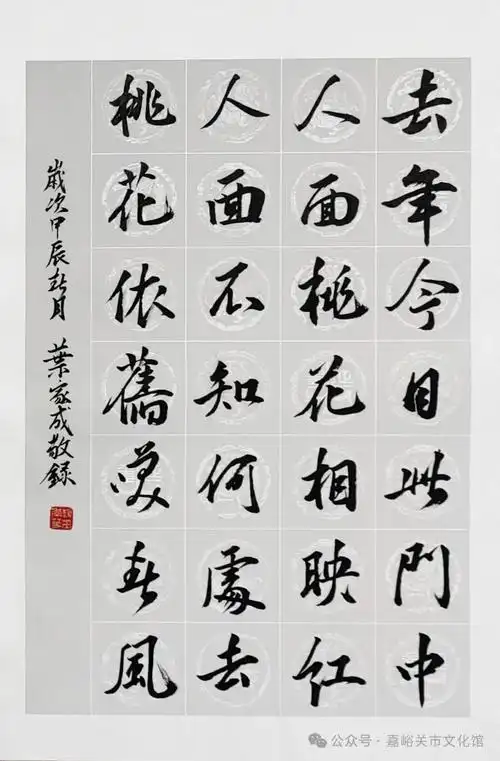 去年今日此門中
人面桃花相映紅
人面不知何處去
桃花依舊笑春風
歲次甲辰春月 葉家成敬録
公众号·嘉峪关市文化馆